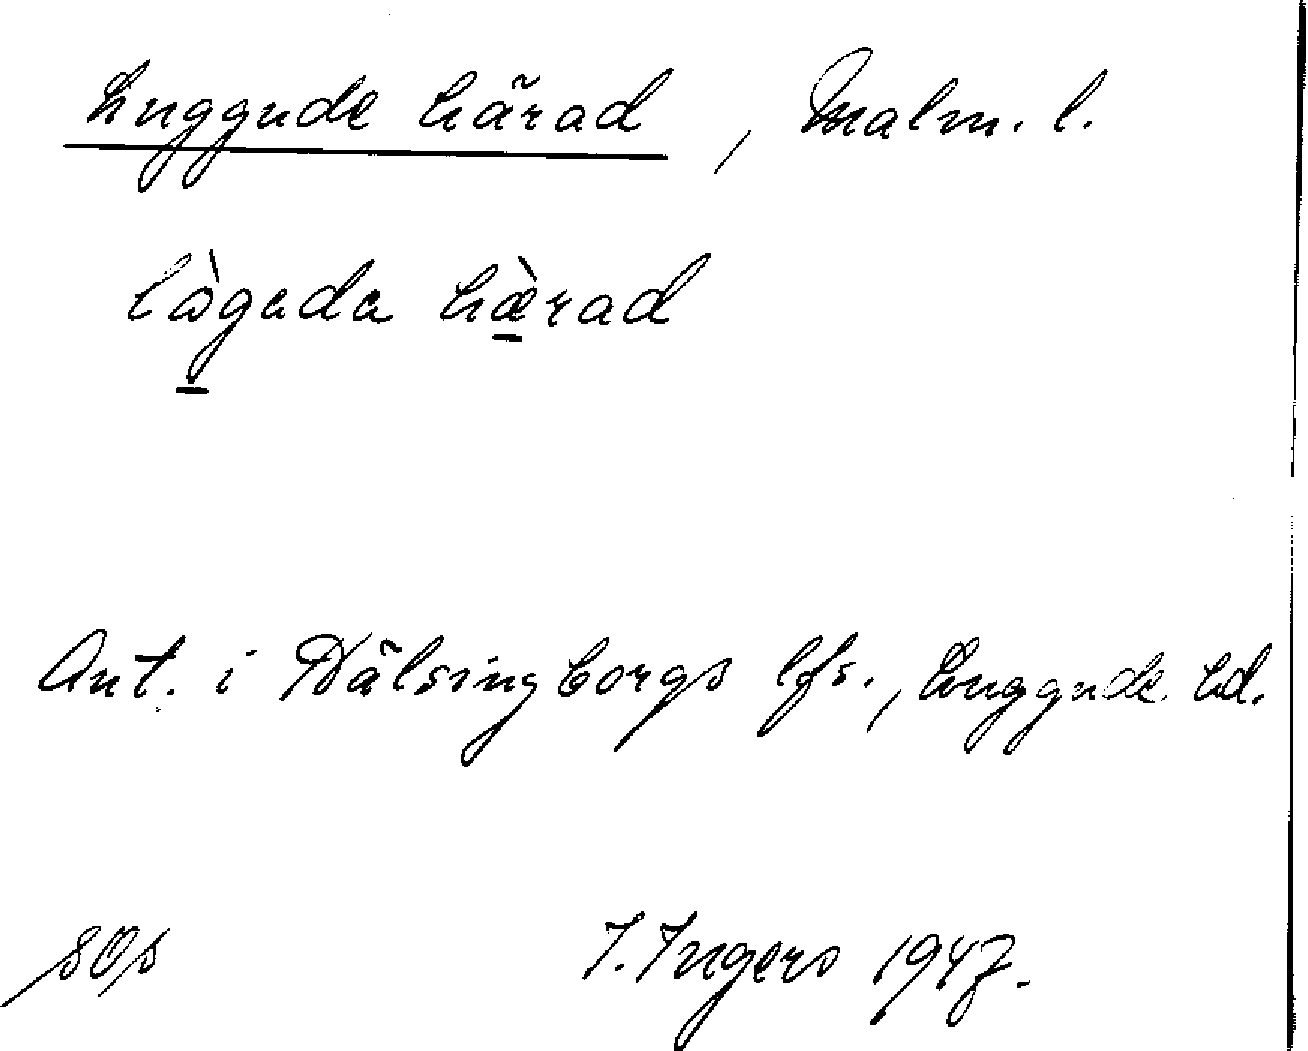 Luggude härad, Malm. l.
lògada hæ̀rad
Ant. i Hälsingborgs lfs., Luggude hd.
I. Ingers 1947.